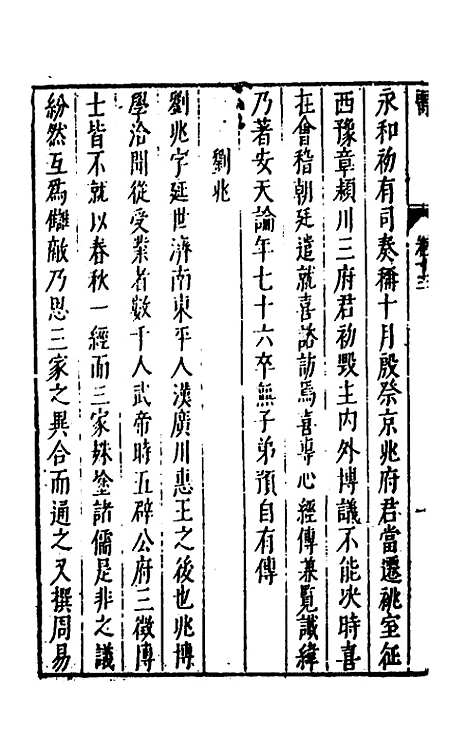 永和初有司奏稱十月殷祭京兆府君當遷祧室征
西豫章潁川三府君初毀主內外博議不能決時喜
在會稽朝廷遣就喜諮訪焉喜專心經傳兼覽讖緯
乃著安天論年七十六卒無子弟預自有傳
劉兆
劉兆字延世濟南東平人漢廣川惠王之後也兆博
學洽聞從受業者數千人武帝時五辟公府三徵博
士皆不就以春秋一經而三家殊塗諸儒是非之議
紛然互爲讎敵乃思三家之異合而通之又撰周易